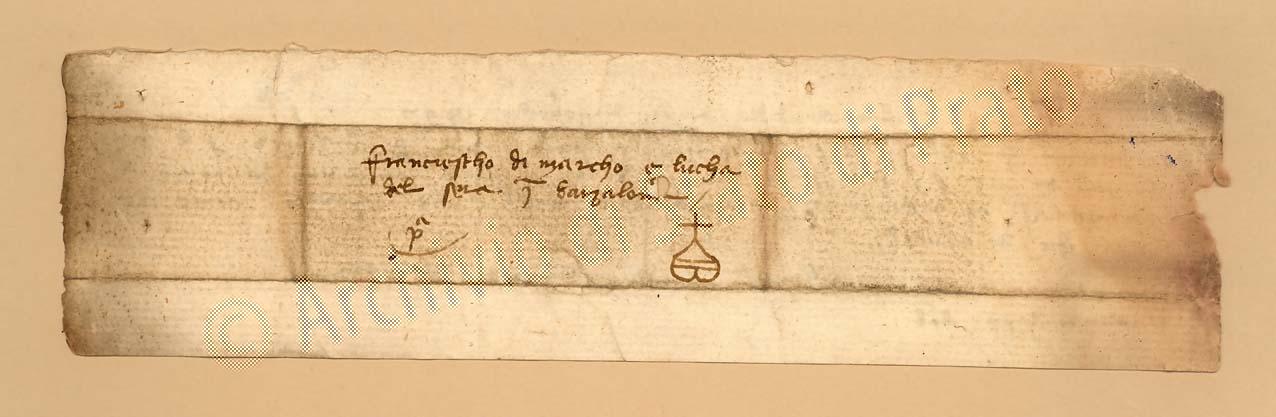 franciescho di marcho e lucha
del sera j barzalona
pª
B
© Archivio di Stato di Prato